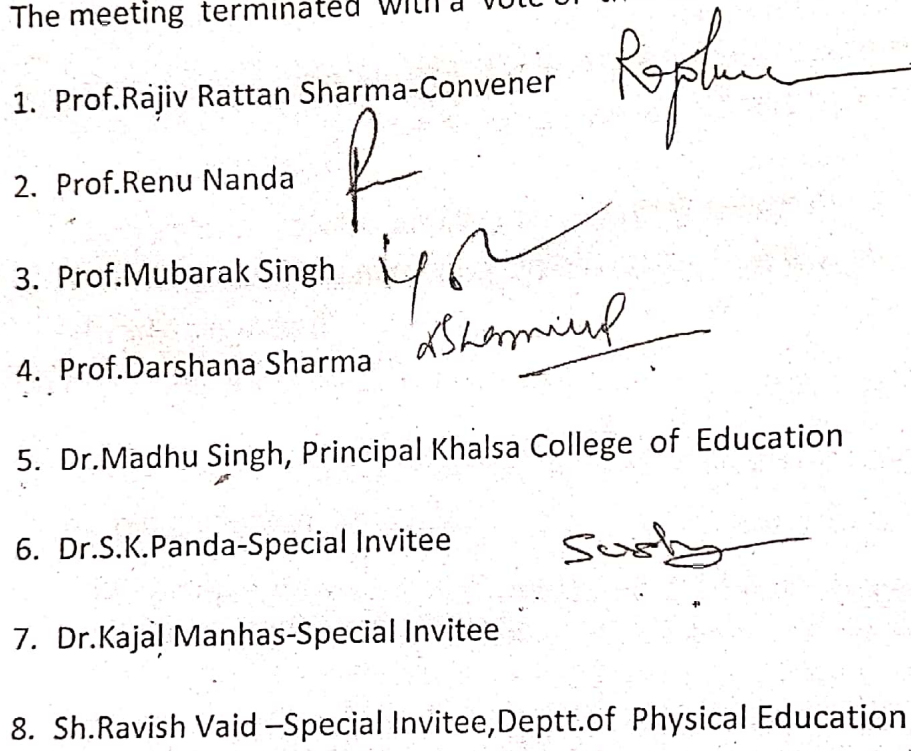 The meeting terminated with a vote of
1. Prof.Rajiv Rattan Sharma-Convener
2. Prof.Renu Nanda
3. Prof.Mubarak Singh
4. Prof.Darshana Sharma
5. Dr.Madhu Singh, Principal Khalsa College of Education
6. Dr.S.K.Panda-Special Invitee
7. Dr.Kajal Manhas-Special Invitee
8. Sh.Ravish Vaid –Special Invitee,Deptt.of Physical Education